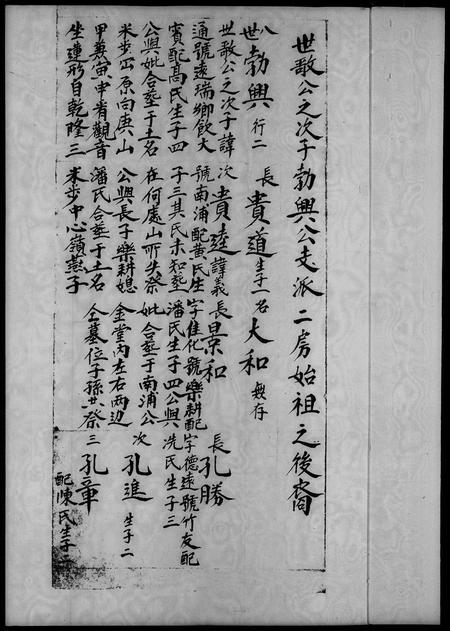 世敢公之次子勃興公支派二房始祖之後裔
八世 勃興 行二
世敢公之次子諱
通號遠瑞鄉飲大
賓配高氏生子四
公與妣合塟于土名
米步原向庚山
甲兼寅申看觀音
坐蓮形自乾隆三
長 貴道 生子一名 大和 無存
次 貴逵 諱義
號南浦配黃氏生
子三其氏未知塟
在何處山所坐祭
公與長子樂耕媳
潘氏合塟于土名
米步中心嶺燕子
長 景和
字佳化號樂耕配
潘氏生子四公與
妣合塟于南浦公
金堂內左右兩边
仝墓位子孫共祭
長 孔勝
字德遠號竹友配
冼氏生子三
次 孔進 生子二
三 孔章
配陳氏生子二